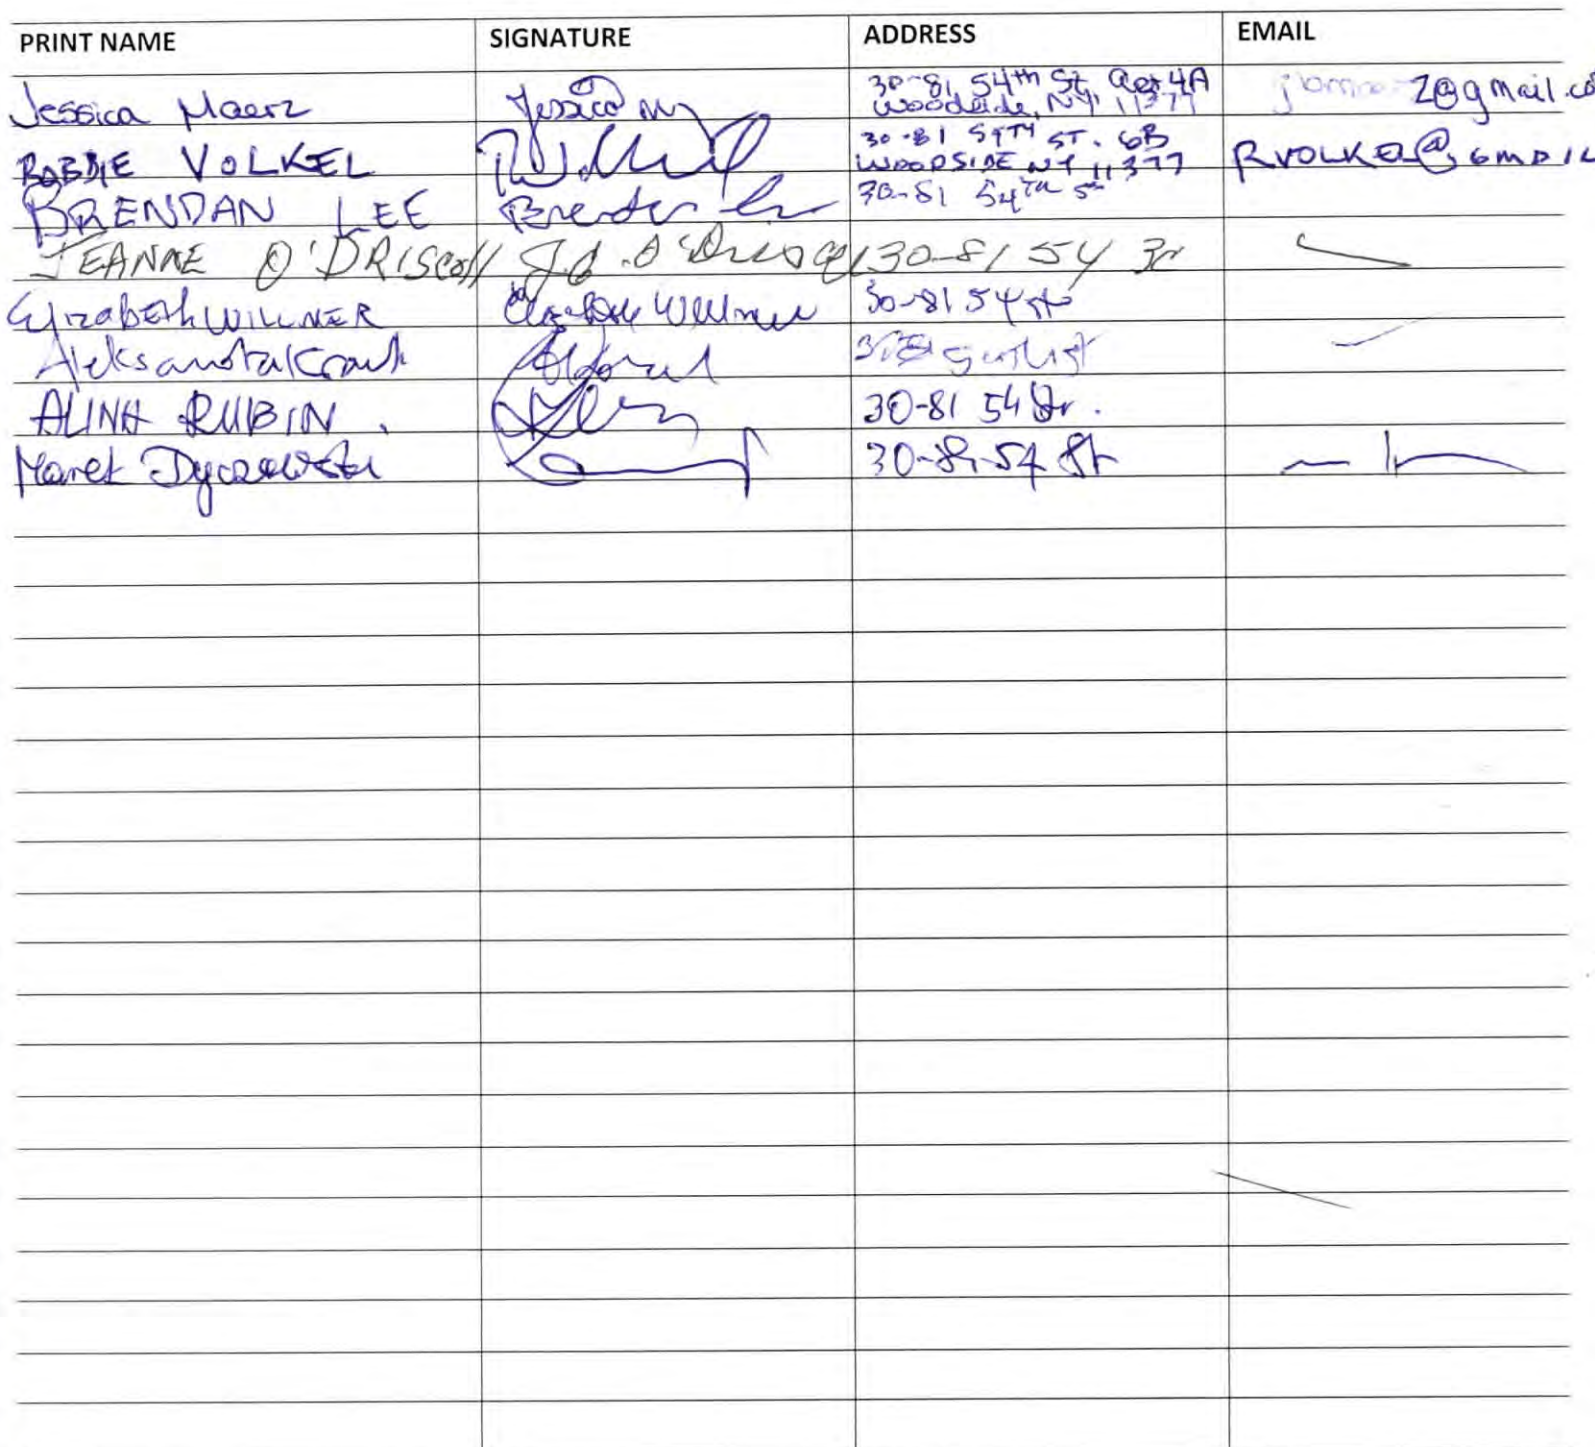 PRINT NAME SIGNATURE ADDRESS EMAIL
Jessica Maerz Jessica 30-81 54th St Apt 4A
Woodside, NY 11377 2@gmail.co
ROBBIE VOLKEL 30-81 54TH ST. 6B
WOODSIDE NY 11377 RVOLKEL@GMAIL
BRENDAN LEE Brendan Lee 30-81 54TH ST
JEANNE O'DRISCOLL J. O'Driscoll 30-81 54 St
Elizabeth WILLNER Elizabeth Willner 30-81 54 St
ALINA RUBIN. 30-81 54 Str.
Marek 30-81-54 St